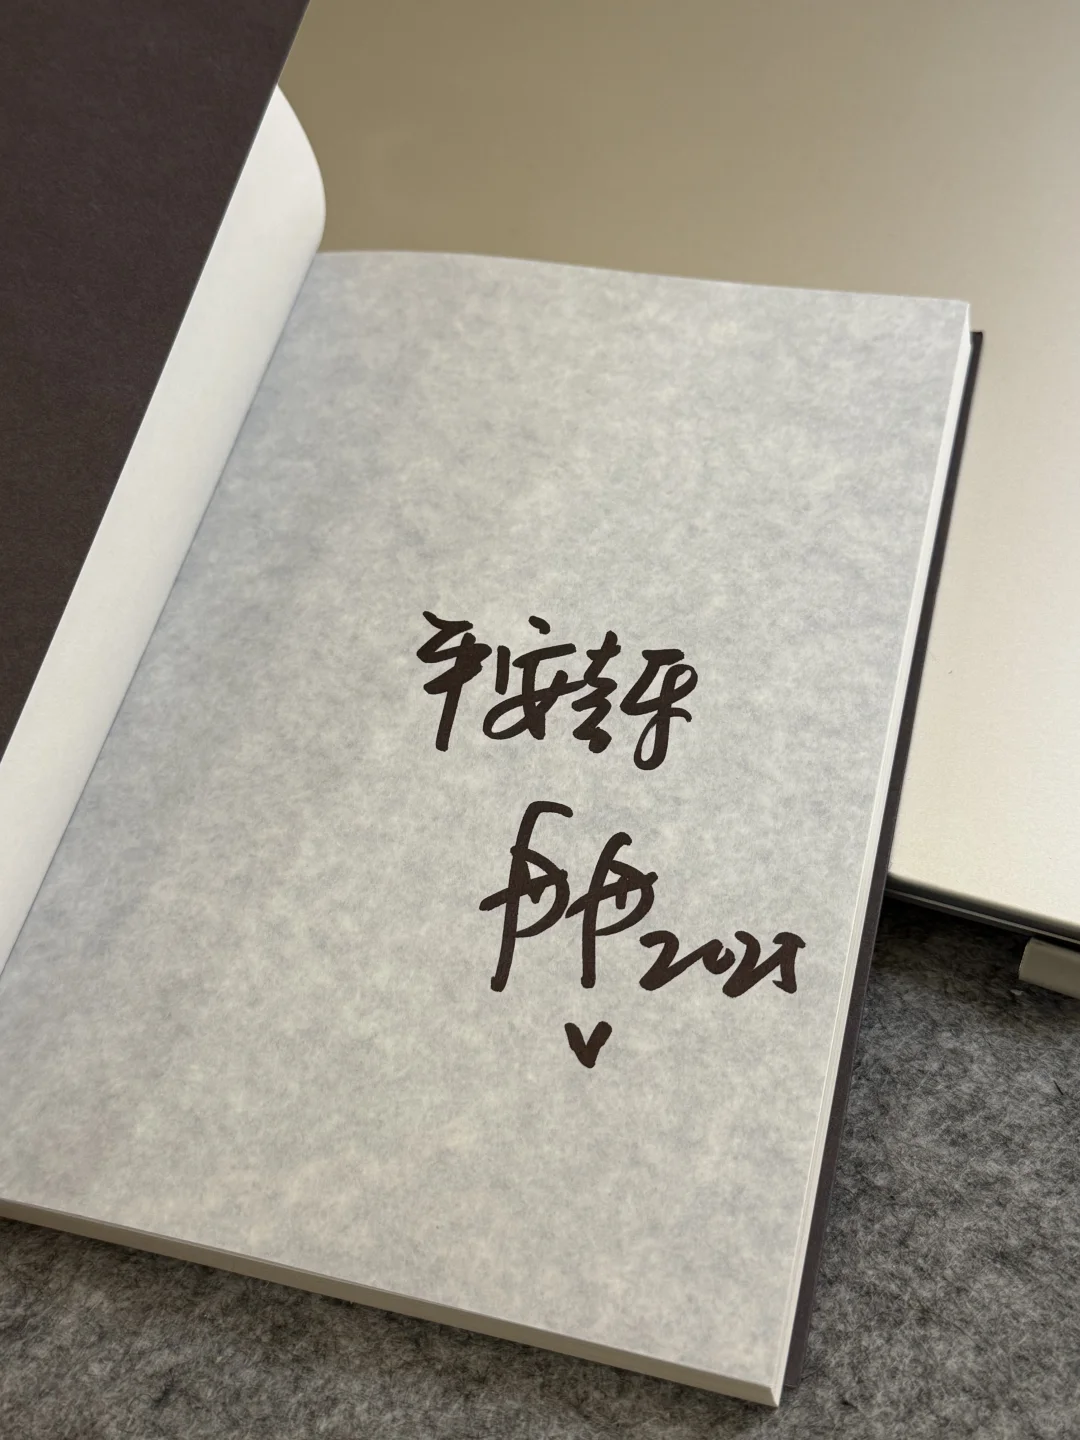 平安喜乐
2025